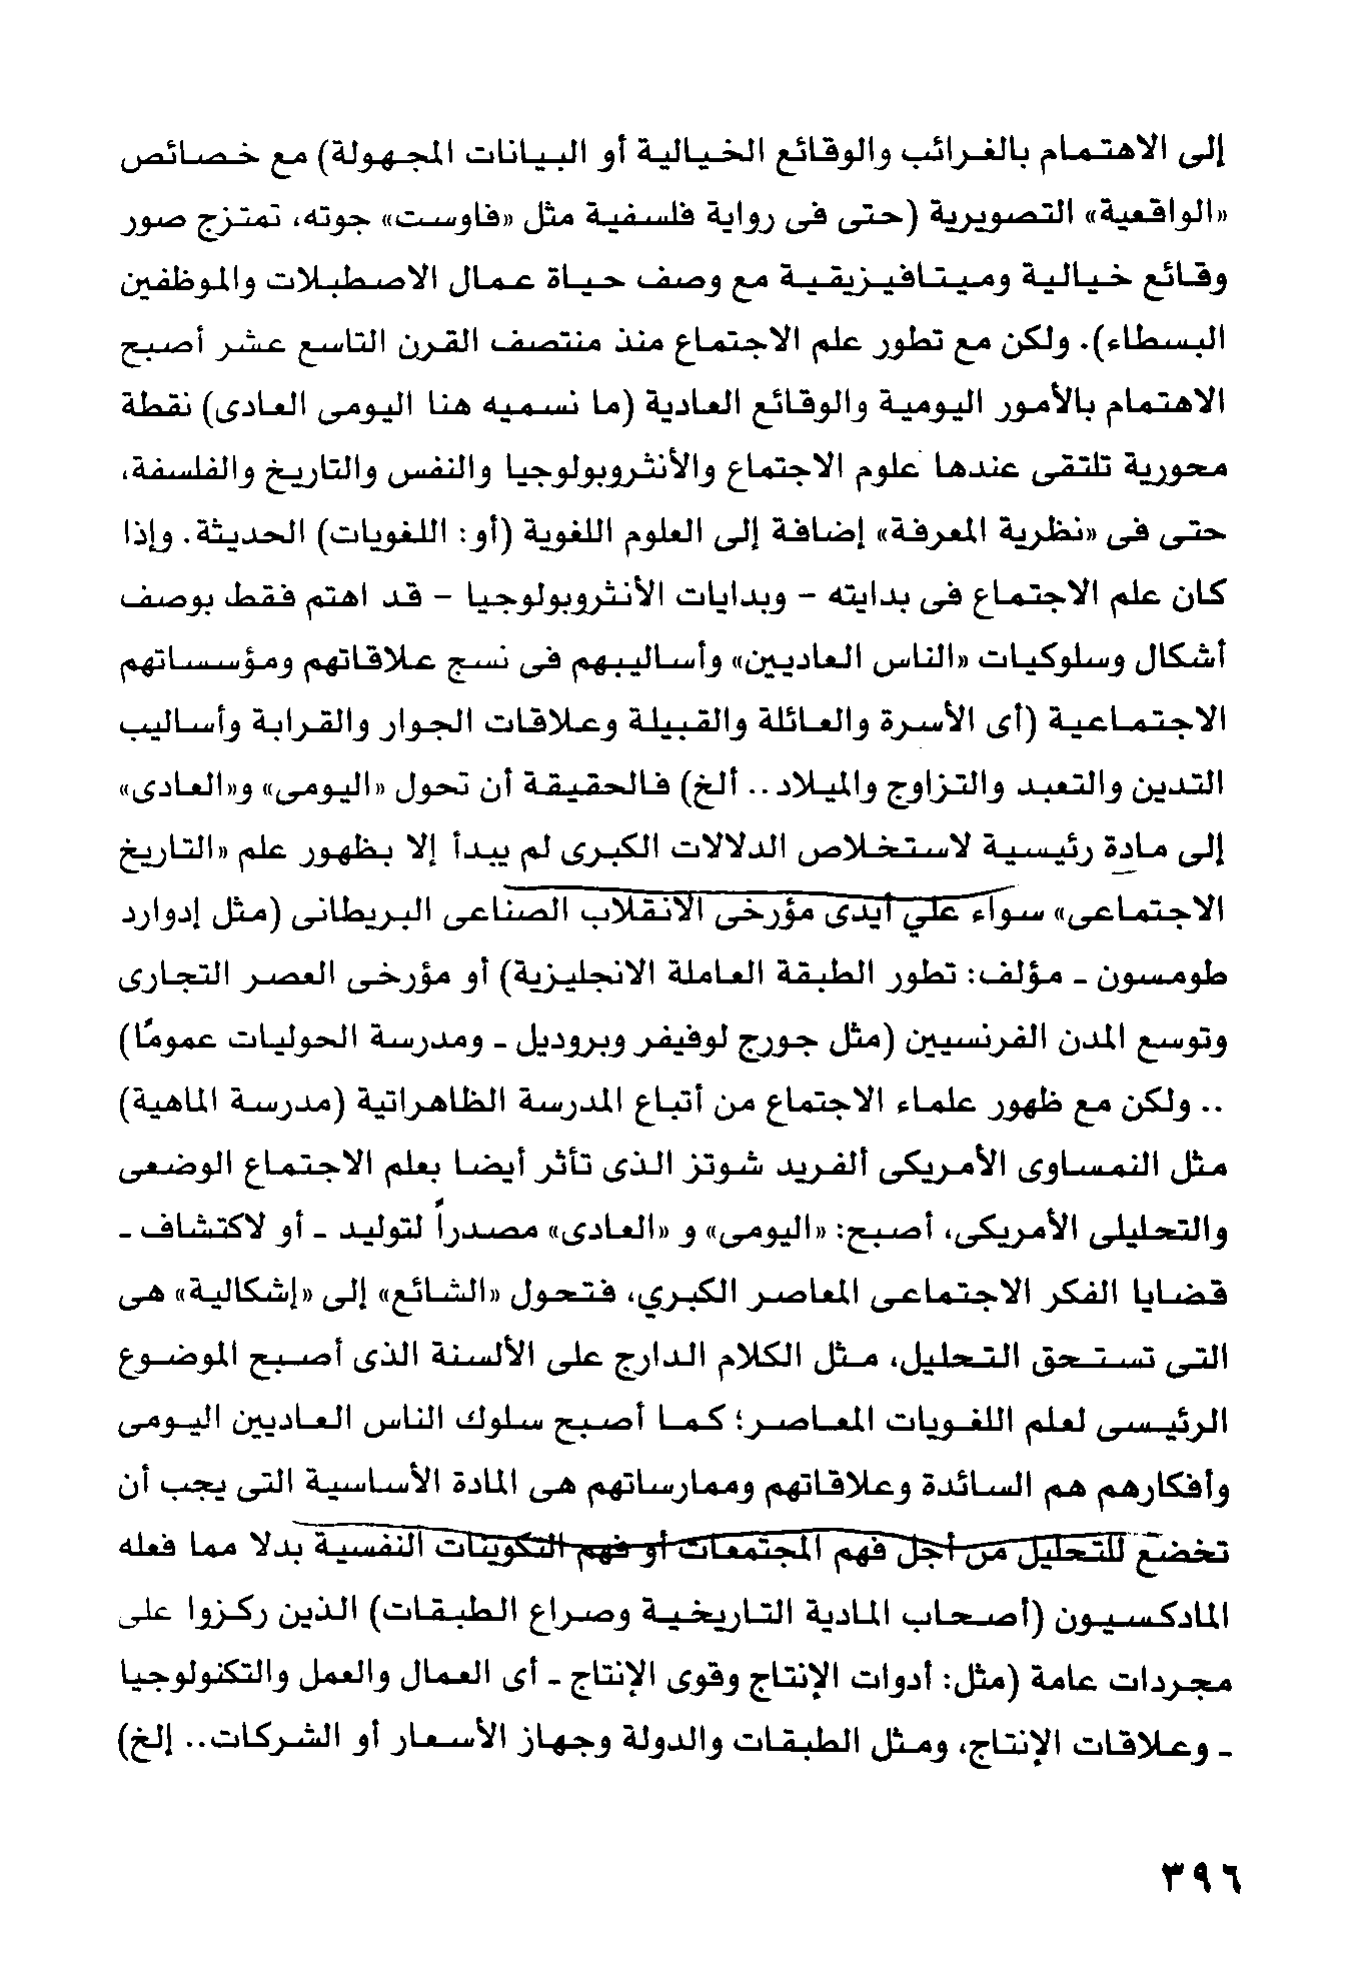 إلى الاهتمام بالغرائب والوقائع الخيالية أو البيانات المجهولة) مع خصائص
«الواقعية» التصويرية (حتى فى رواية فلسفية مثل «فاوست» جوته، تمتزج صور
وقائع خيالية وميتافيزيقية مع وصف حياة عمال الاصطبلات والموظفين
البسطاء). ولكن مع تطور علم الاجتماع منذ منتصف القرن التاسع عشر أصبح
الاهتمام بالأمور اليومية والوقائع العادية (ما نسميه هنا اليومى العادى) نقطة
محورية تلتقى عندها علوم الاجتماع والأنثروبولوجيا والنفس والتاريخ والفلسفة،
حتى فى «نظرية المعرفة» إضافة إلى العلوم اللغوية (أو: اللغويات) الحديثة. وإذا
كان علم الاجتماع فى بدايته - وبدايات الأنثروبولوجيا - قد اهتم فقط بوصف
أشكال وسلوكيات «الناس العاديين» وأساليبهم فى نسج علاقاتهم ومؤسساتهم
الاجتماعية (أى الأسرة والعائلة والقبيلة وعلاقات الجوار والقرابة وأساليب
التدين والتعبد والتزاوج والميلاد .. ألخ) فالحقيقة أن تحول «اليومى» و«العادى»
إلى مادة رئيسية لاستخلاص الدلالات الكبرى لم يبدأ إلا بظهور علم «التاريخ
الاجتماعى» سواء علي أيدى مؤرخى الانقلاب الصناعى البريطانى (مثل إدوارد
طومسون ـ مؤلف: تطور الطبقة العاملة الانجليزية) أو مؤرخى العصر التجارى
وتوسع المدن الفرنسيين (مثل جورج لوفيفر وبروديل ـ ومدرسة الحوليات عمومًا)
.. ولكن مع ظهور علماء الاجتماع من أتباع المدرسة الظاهراتية (مدرسة الماهية)
مثل النمساوى الأمريكى ألفريد شوتز الذى تأثر أيضا بعلم الاجتماع الوضعى
والتحليلى الأمريكى، أصبح: «اليومى» و «العادى» مصدراً لتوليد ـ أو لاكتشاف ـ
قضايا الفكر الاجتماعى المعاصر الكبري، فتحول «الشائع» إلى «إشكالية» هى
التى تستحق التحليل، مثل الكلام الدارج على الألسنة الذى أصبح الموضوع
الرئيسى لعلم اللغويات المعاصر؛ كما أصبح سلوك الناس العاديين اليومى
وأفكارهم هم السائدة وعلاقاتهم وممارساتهم هى المادة الأساسية التى يجب أن
تخضع للتحليل من أجل فهم المجتمعات أو فهم التكوينات النفسية بدلا مما فعله
المادكسيون (أصحاب المادية التاريخية وصراع الطبقات) الذين ركزوا على
مجردات عامة (مثل: أدوات الإنتاج وقوى الإنتاج ـ أى العمال والعمل والتكنولوجيا
ـ وعلاقات الإنتاج، ومثل الطبقات والدولة وجهاز الأسعار أو الشركات.. إلخ)
٣٩٦